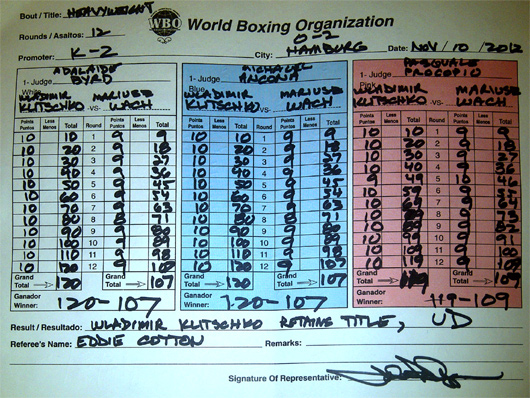 Bout / Title: HEAVYWEIGHT
WBO World Boxing Organization
Rounds / Asaltos: 12 O-2
Promoter: K-2 City: HAMBURG Date: NOV / 10 / 2012
1- Judge ADALAIDE BYRD 1- Judge MICHAEL ANCONA 1- Judge PASQUALE PROCOPIO
White Blue Pink
WLADIMIR KLITSCHKO -VS- MARIUSZ WACH WLADIMIR KLITSCHKO -vs- MARIUSZ WACH WLADIMIR KLITSCHKO -vs- MARIUSZ WACH
Points Puntos Less Menos Total Round Points Puntos Less Menos Total Points Puntos Less Menos Total Round Points Puntos Less Menos Total Points Puntos Less Menos Total Round Points Puntos Less Menos Total
10 10 1 9 9 10 10 1 9 9 10 10 1 9 9
10 20 2 9 18 10 20 2 9 18 10 20 2 9 18
10 30 3 9 27 10 30 3 9 27 10 30 3 9 27
10 40 4 9 36 10 40 4 9 36 10 40 4 9 36
10 50 5 9 45 10 50 5 9 45 9 49 5 10 46
10 60 6 9 54 10 60 6 9 54 10 59 6 9
10 70 7 9 63 10 70 7 9 63 10 69 7 9 64
10 80 8 8 71 10 80 8 8 71 10 8 9 73
10 90 9 9 80 10 90 9 9 80 10 89 9 9 82
10 100 10 9 89 10 100 10 9 89 10 10 9 91
10 110 11 9 98 10 110 11 9 98 10 109 11 9
10 120 12 9 107 10 120 12 9 107 10 119 12 9
Grand Total 120 Grand Total 107 Grand Total 120 Grand Total 107 Grand Total 119 Grand Total
Ganador Winner: 120-107 Ganador Winner: 120-107 Ganador Winner: 119-109
Result / Resultado: WLADIMIR KLITSCHKO RETAINS TITLE, UD
Referee's Name: EDDIE COTTON Remarks:
Signature Of Representative: